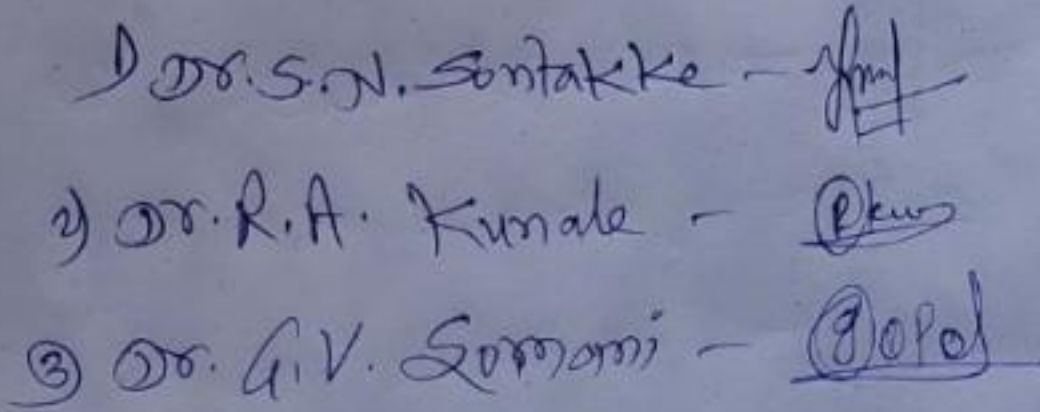 1) Dr. S. N. Sontakke -
2) Dr. R. A. Kunale -
3) Dr. G. V. Somani - Gopal